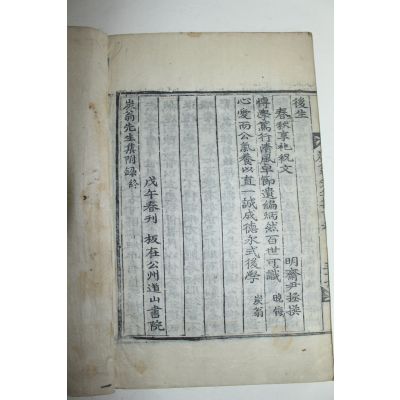 後生
春秋享祀祝文 明齋尹拯撰
博學篤行清風卓節遺編炳然百世可識 晩悔
心愛而公氣養以直一誠成德永式後學 炭翁
戊午春刊 板在公州道山書院
炭翁先生集附錄終